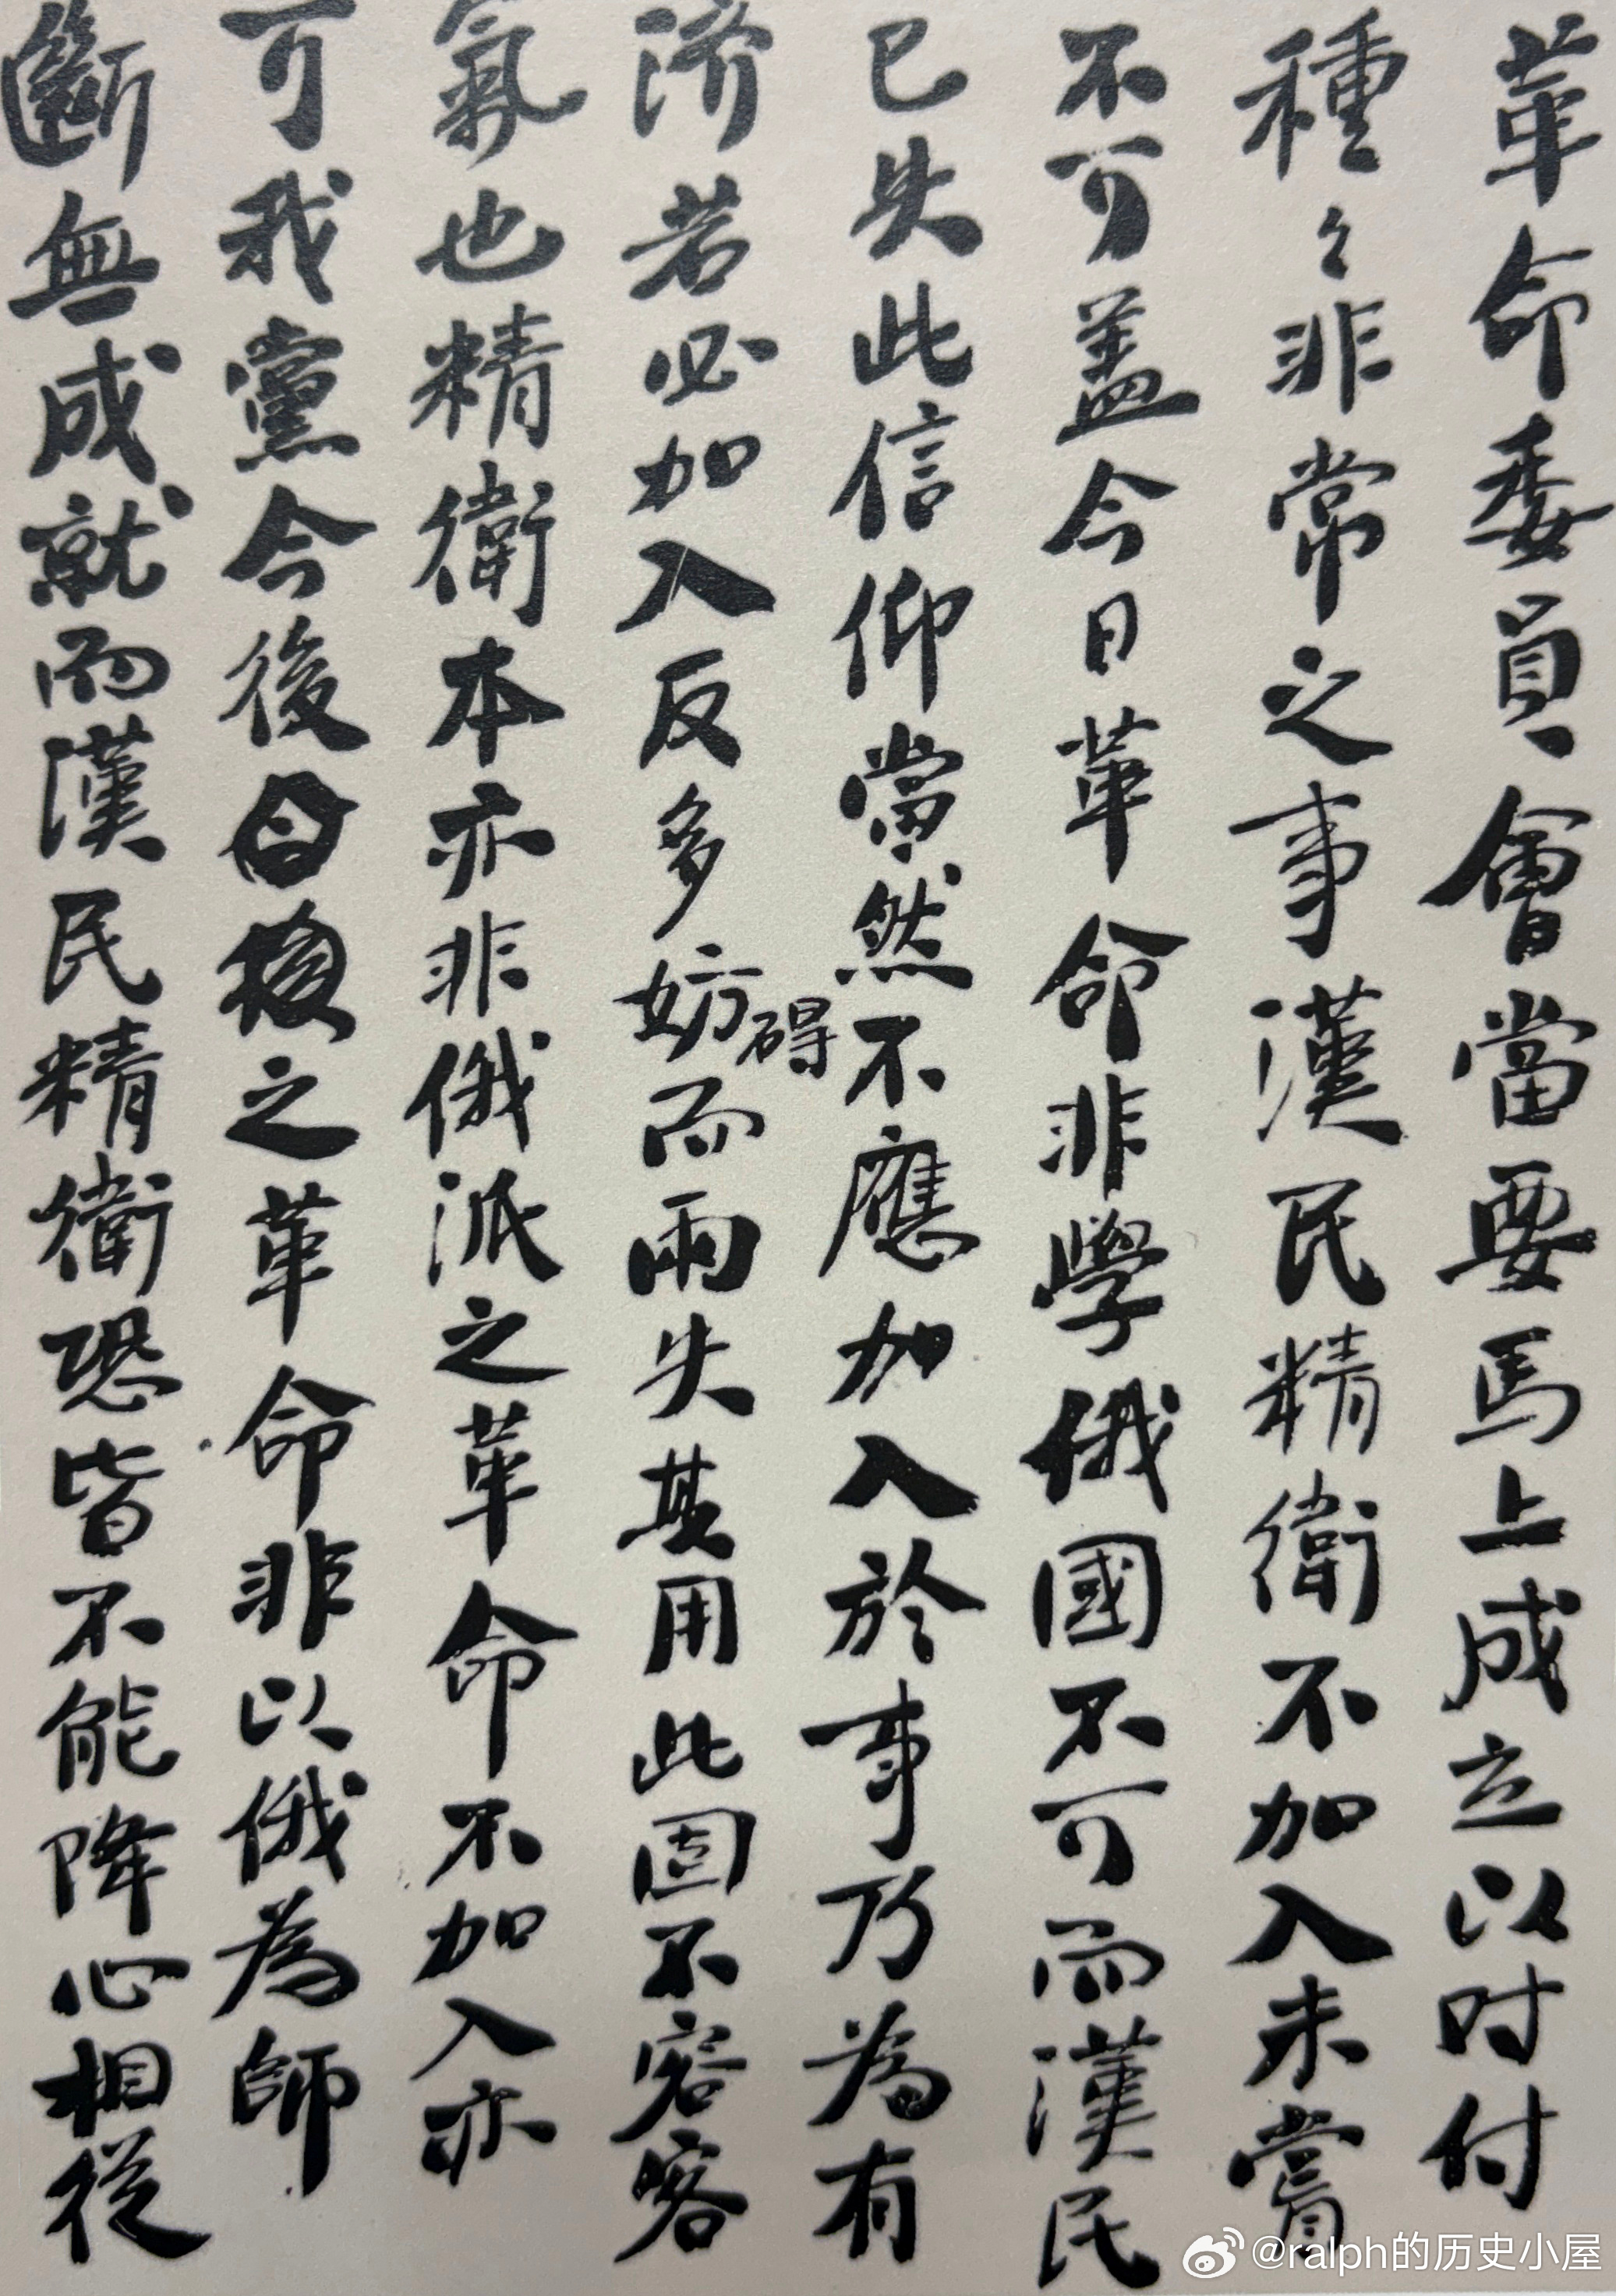 革命委員會當要馬上成立以时付
種々非常之事漢民精衛不加入未嘗
不可盖今日革命非學俄國不可而漢民
已失此信仰當然不應加入於事乃為有
济若必加入反多妨碍而兩失其用此固不容客
氣也精衛本亦非俄派之革命不加入亦
可我黨今後之革命非以俄為師
斷無成就而漢民精衛恐皆不能降心相從
@ralph的历史小屋